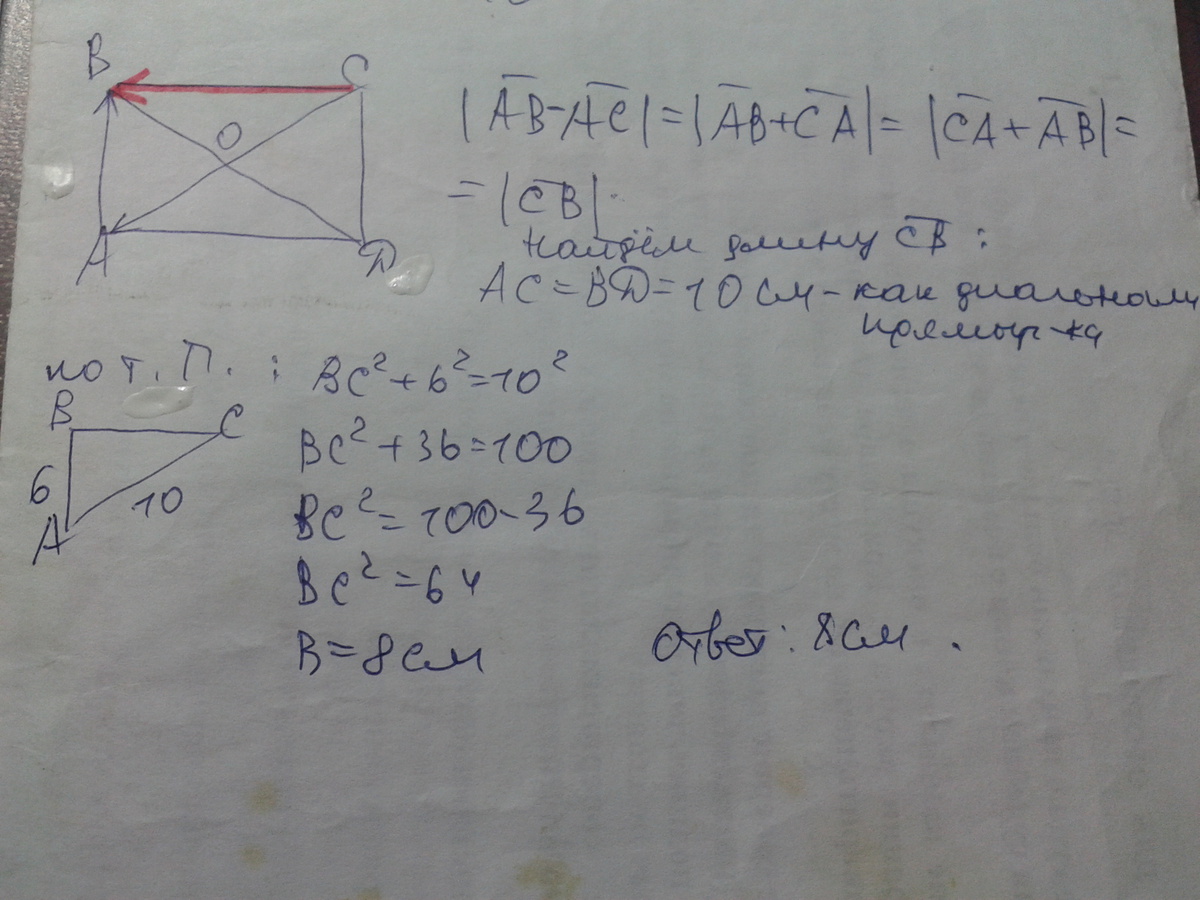 B
C
O
A
D
|A̅B̅-A̅C̅| = |A̅B̅+C̅A̅| = |C̅A̅+A̅B̅| =
= |C̅B̅|.
Найдём длину C̅B̅ :
AC = BD = 10 см - как диагонали
прямоуг-ка
по т. П. :
BC² + 6² = 10²
B
C
6
10
A
BC² + 36 = 100
BC² = 100 - 36
BC² = 64
B = 8 см
Ответ: 8 см .